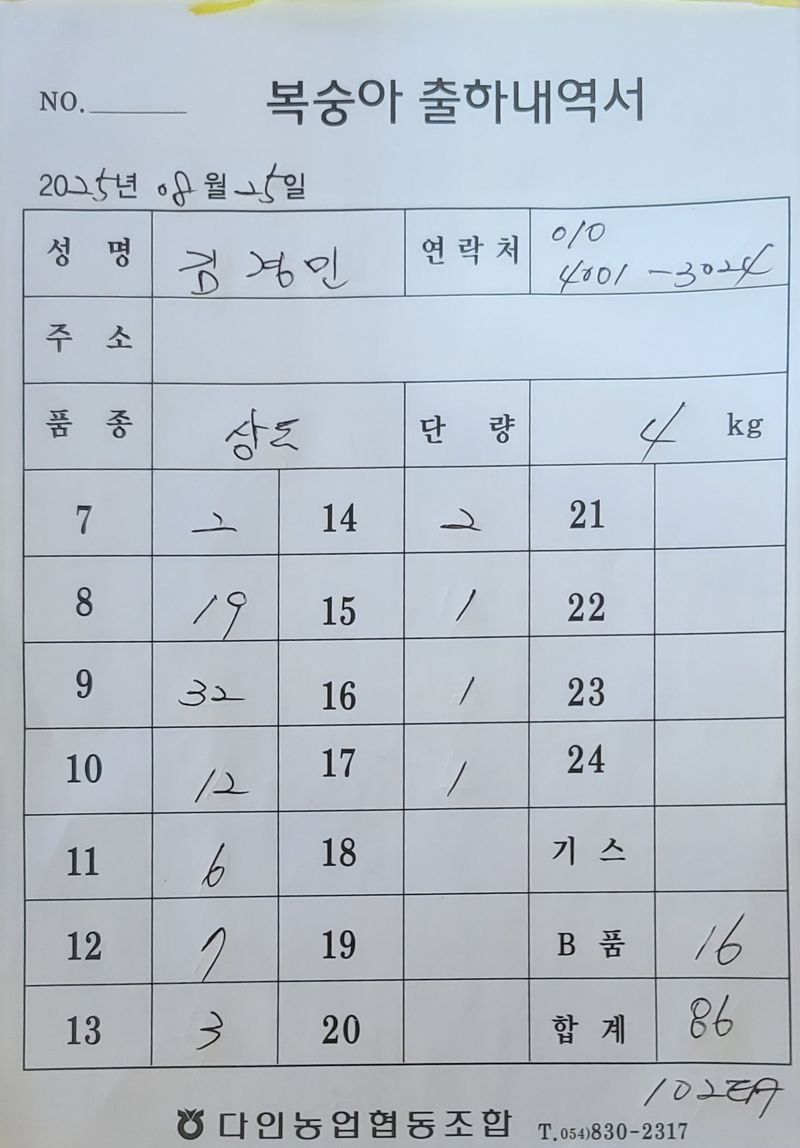 NO.
복숭아 출하내역서
2025년 08월 25일
성 명 김경민 연락처 010 4001-3024
주 소
품 종 상도 단 량 4 kg
7 2 14 2 21
8 19 15 1 22
9 32 16 1 23
10 12 17 1 24
11 6 18 기 스
12 7 19 B 품 16
13 3 20 합 계 86
102EA
다인농업협동조합 T.054)830-2317